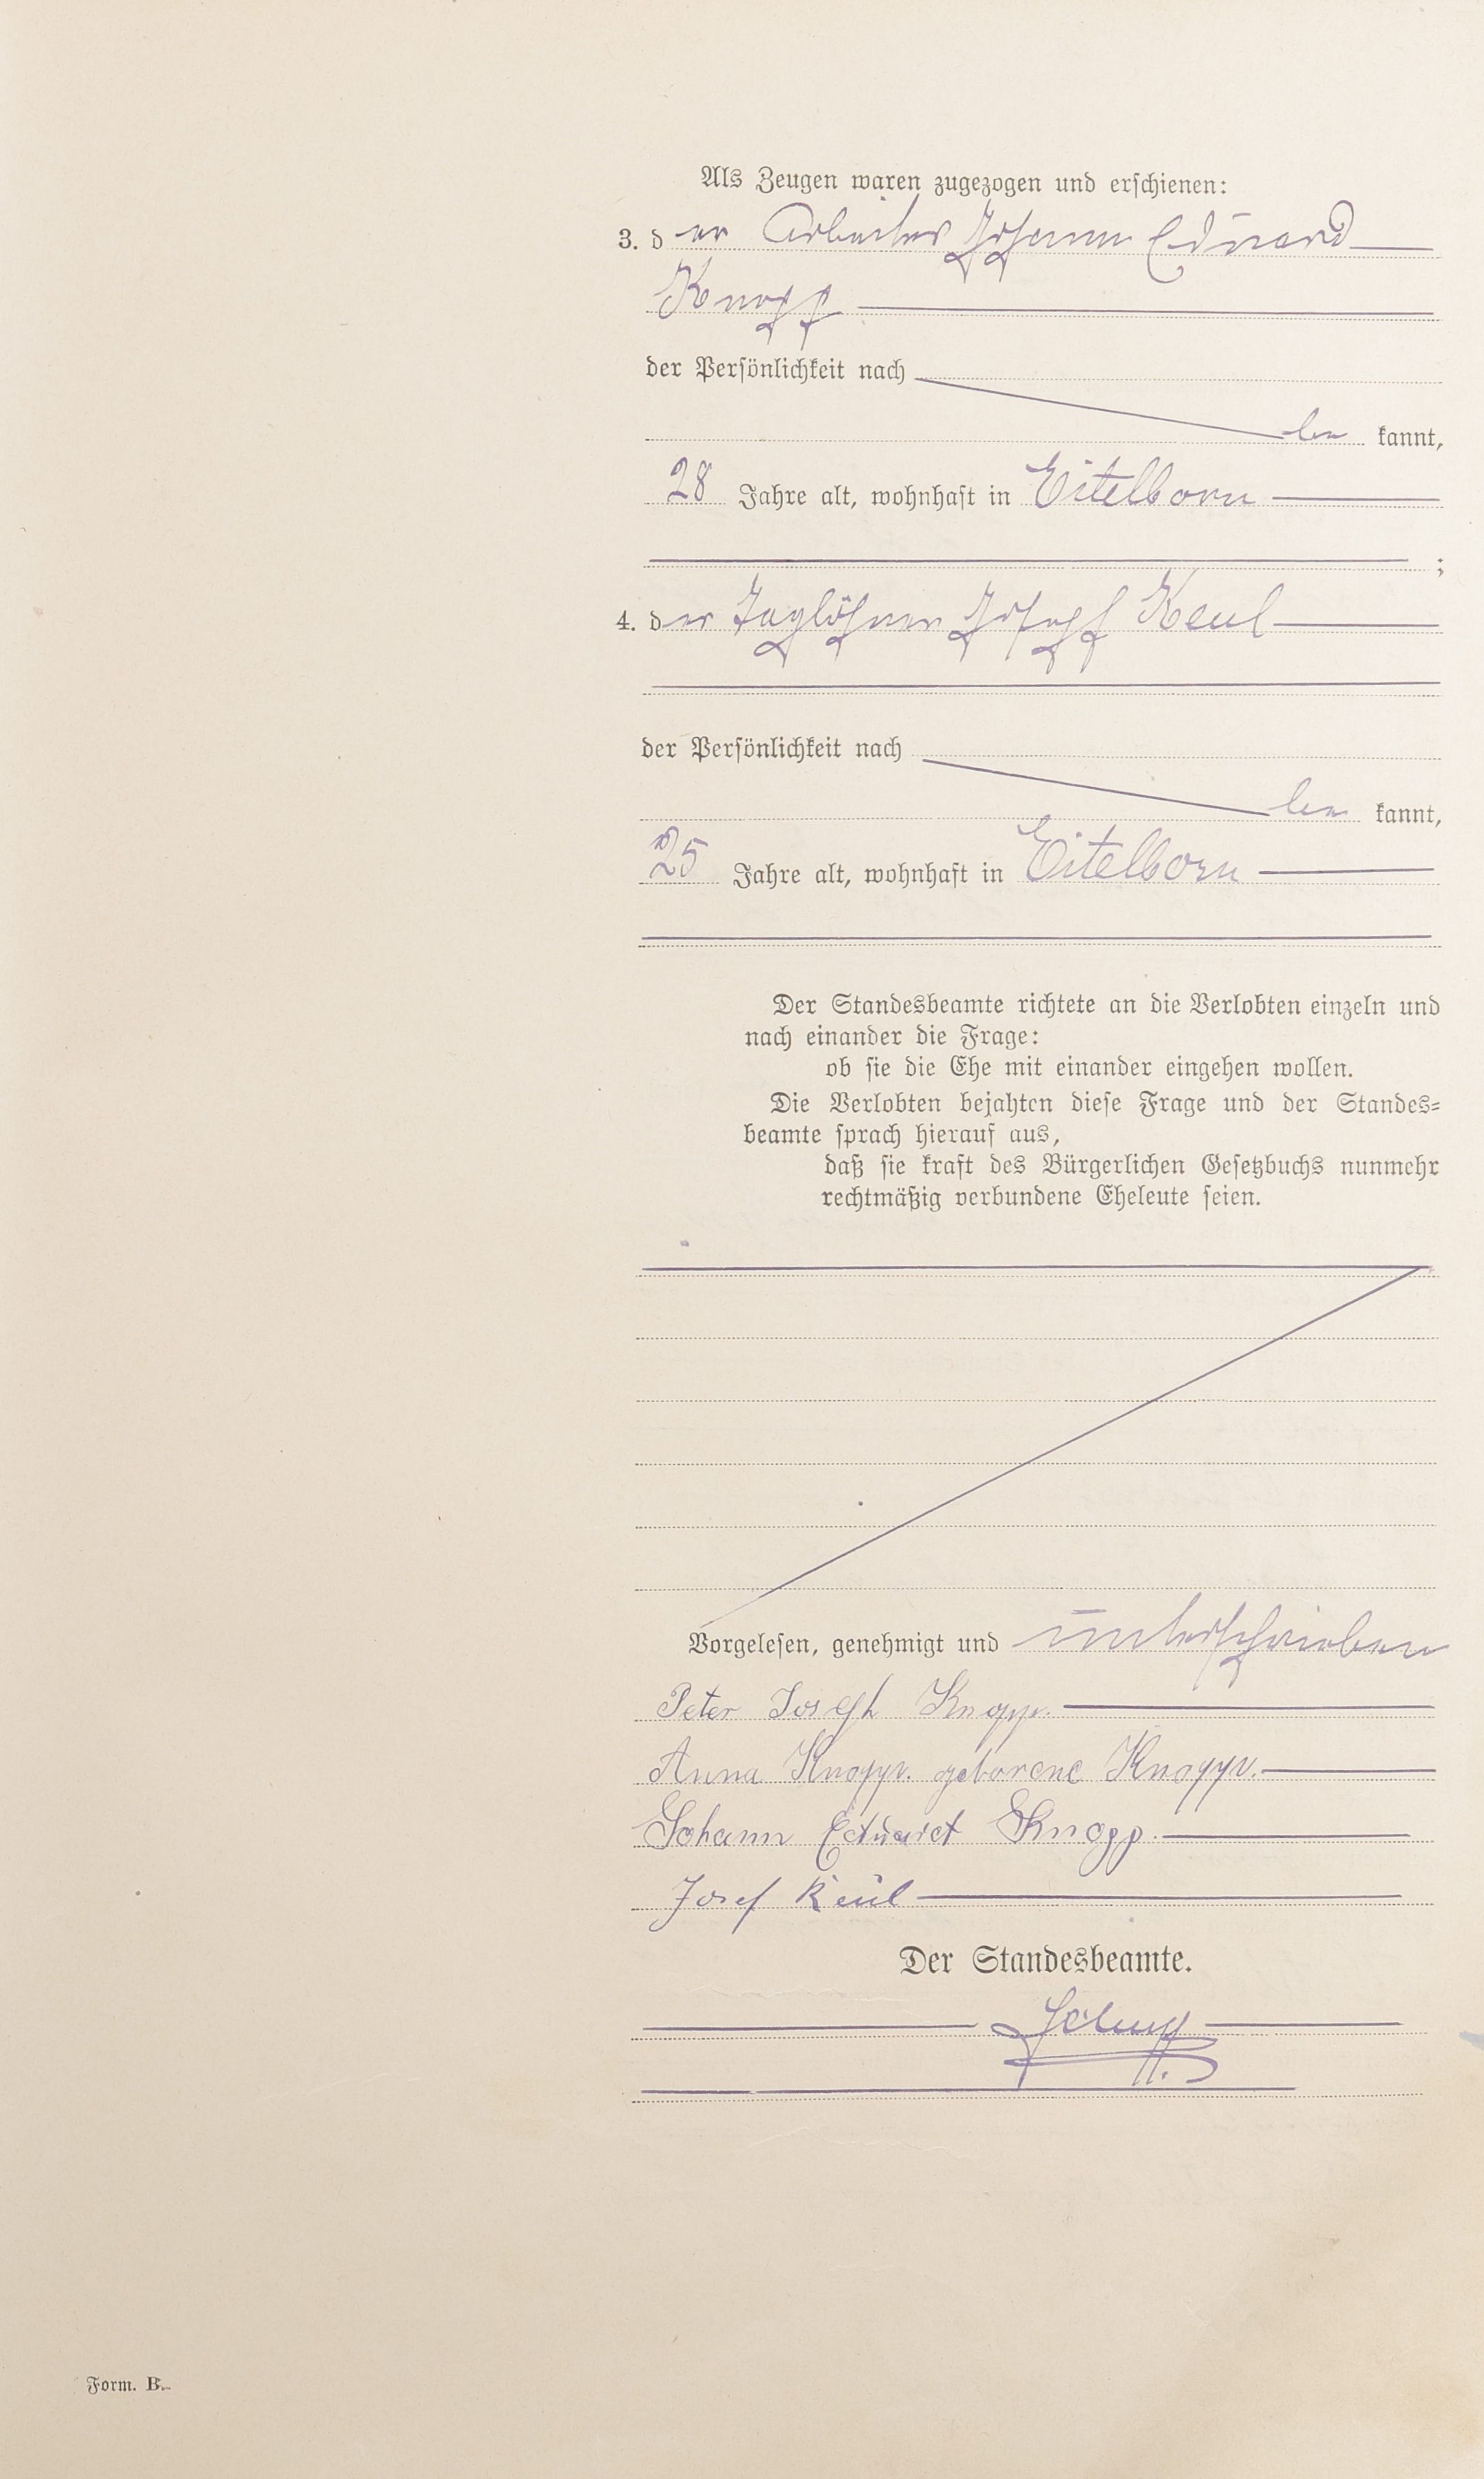 Als Zeugen waren zugezogen und erschienen:
3. der Arbeiter Johann Eduard
Knopp
der Persönlichkeit nach
be kannt,
28 Jahre alt, wohnhaft in Eitelborn
;
4. der Taglöhner Joseph Keul
der Persönlichkeit nach
be kannt,
25 Jahre alt, wohnhaft in Eitelborn
Der Standesbeamte richtete an die Verlobten einzeln und
nach einander die Frage:
ob sie die Ehe mit einander eingehen wollen.
Die Verlobten bejahten diese Frage und der Standes=
beamte sprach hierauf aus,
daß sie kraft des Bürgerlichen Gesetzbuchs nunmehr
rechtmäßig verbundene Eheleute seien.
Vorgelesen, genehmigt und unterschrieben
Peter Joseph Knopp.
Anna Knopp. geborene Knopp.
Johann Eduard Knopp.
Josef Keul
Der Standesbeamte.
Form. B.